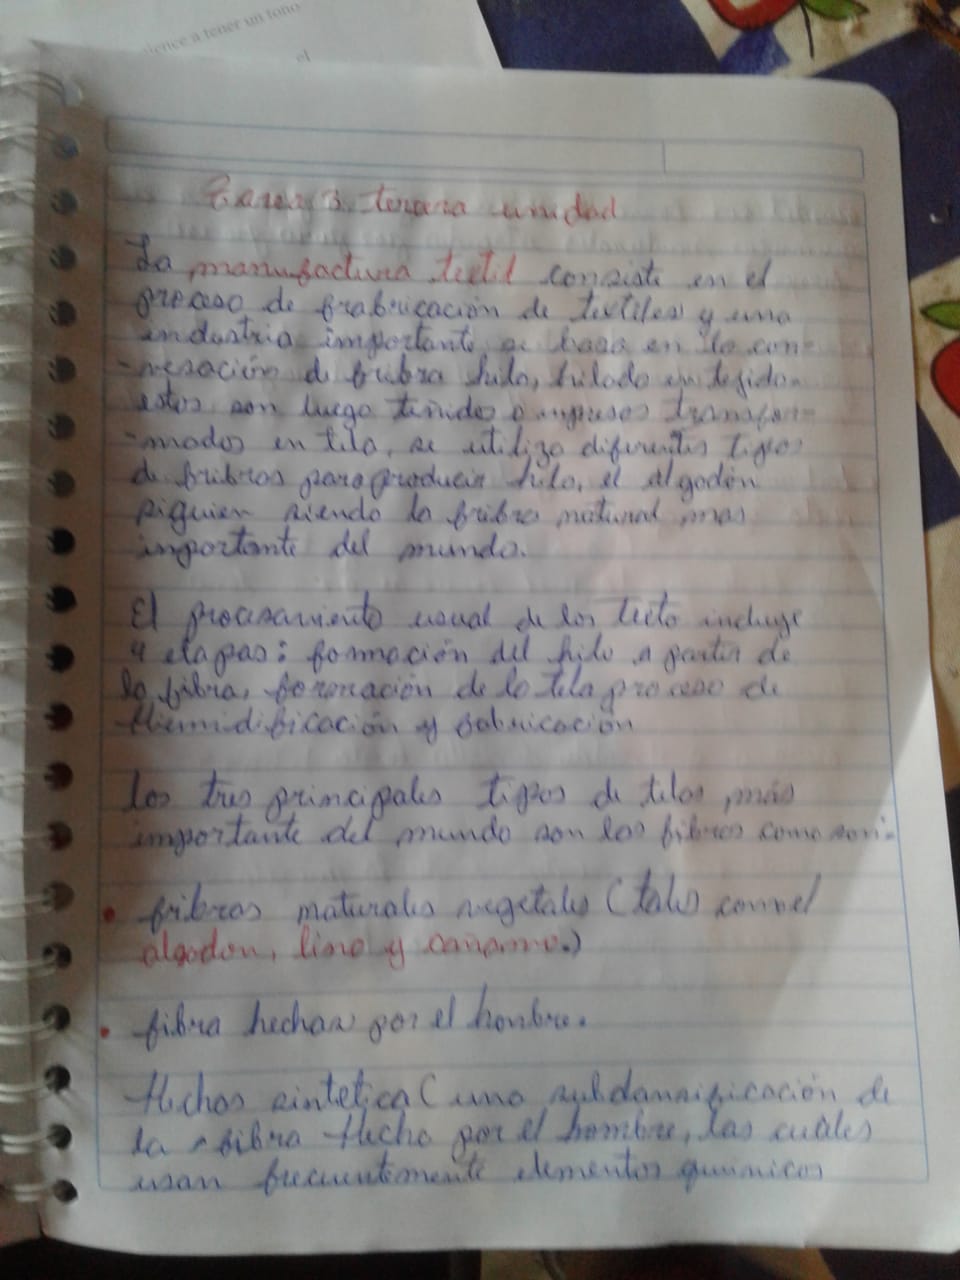 ience a tener un tono
el
Tarea 3. tercera unidad
La manufactura textil consiste en el
proceso de frabricación de textiles y una
industria importante se basa en la con-
-versación de fribra hilo, hilado en tejido.
estos son luego teñidos o impresos transfor-
-mados en tela, se utiliza diferentes tipos
de fribras para producir hilo, el algodón
siguien siendo la fribra natural mas
importante del mundo.
El procesamiento usual de los texto incluye
4 etapas: formación del hilo a partir de
la fibra, formación de la tela proceso de
y fabricación
Los tres principales tipos de telas más
importante del mundo son las fibras como son:
• fribras naturales vegetales (tales como el
algodon, lino y cañamo.)
• fibra hechas por el honbre.
Hechas sintetica (una de
la fibra Hecha por el hombre, las cuáles
usan frecuentemente elementos quimicos